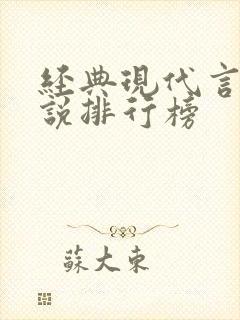 經典現代言
說排行榜
蘇大東